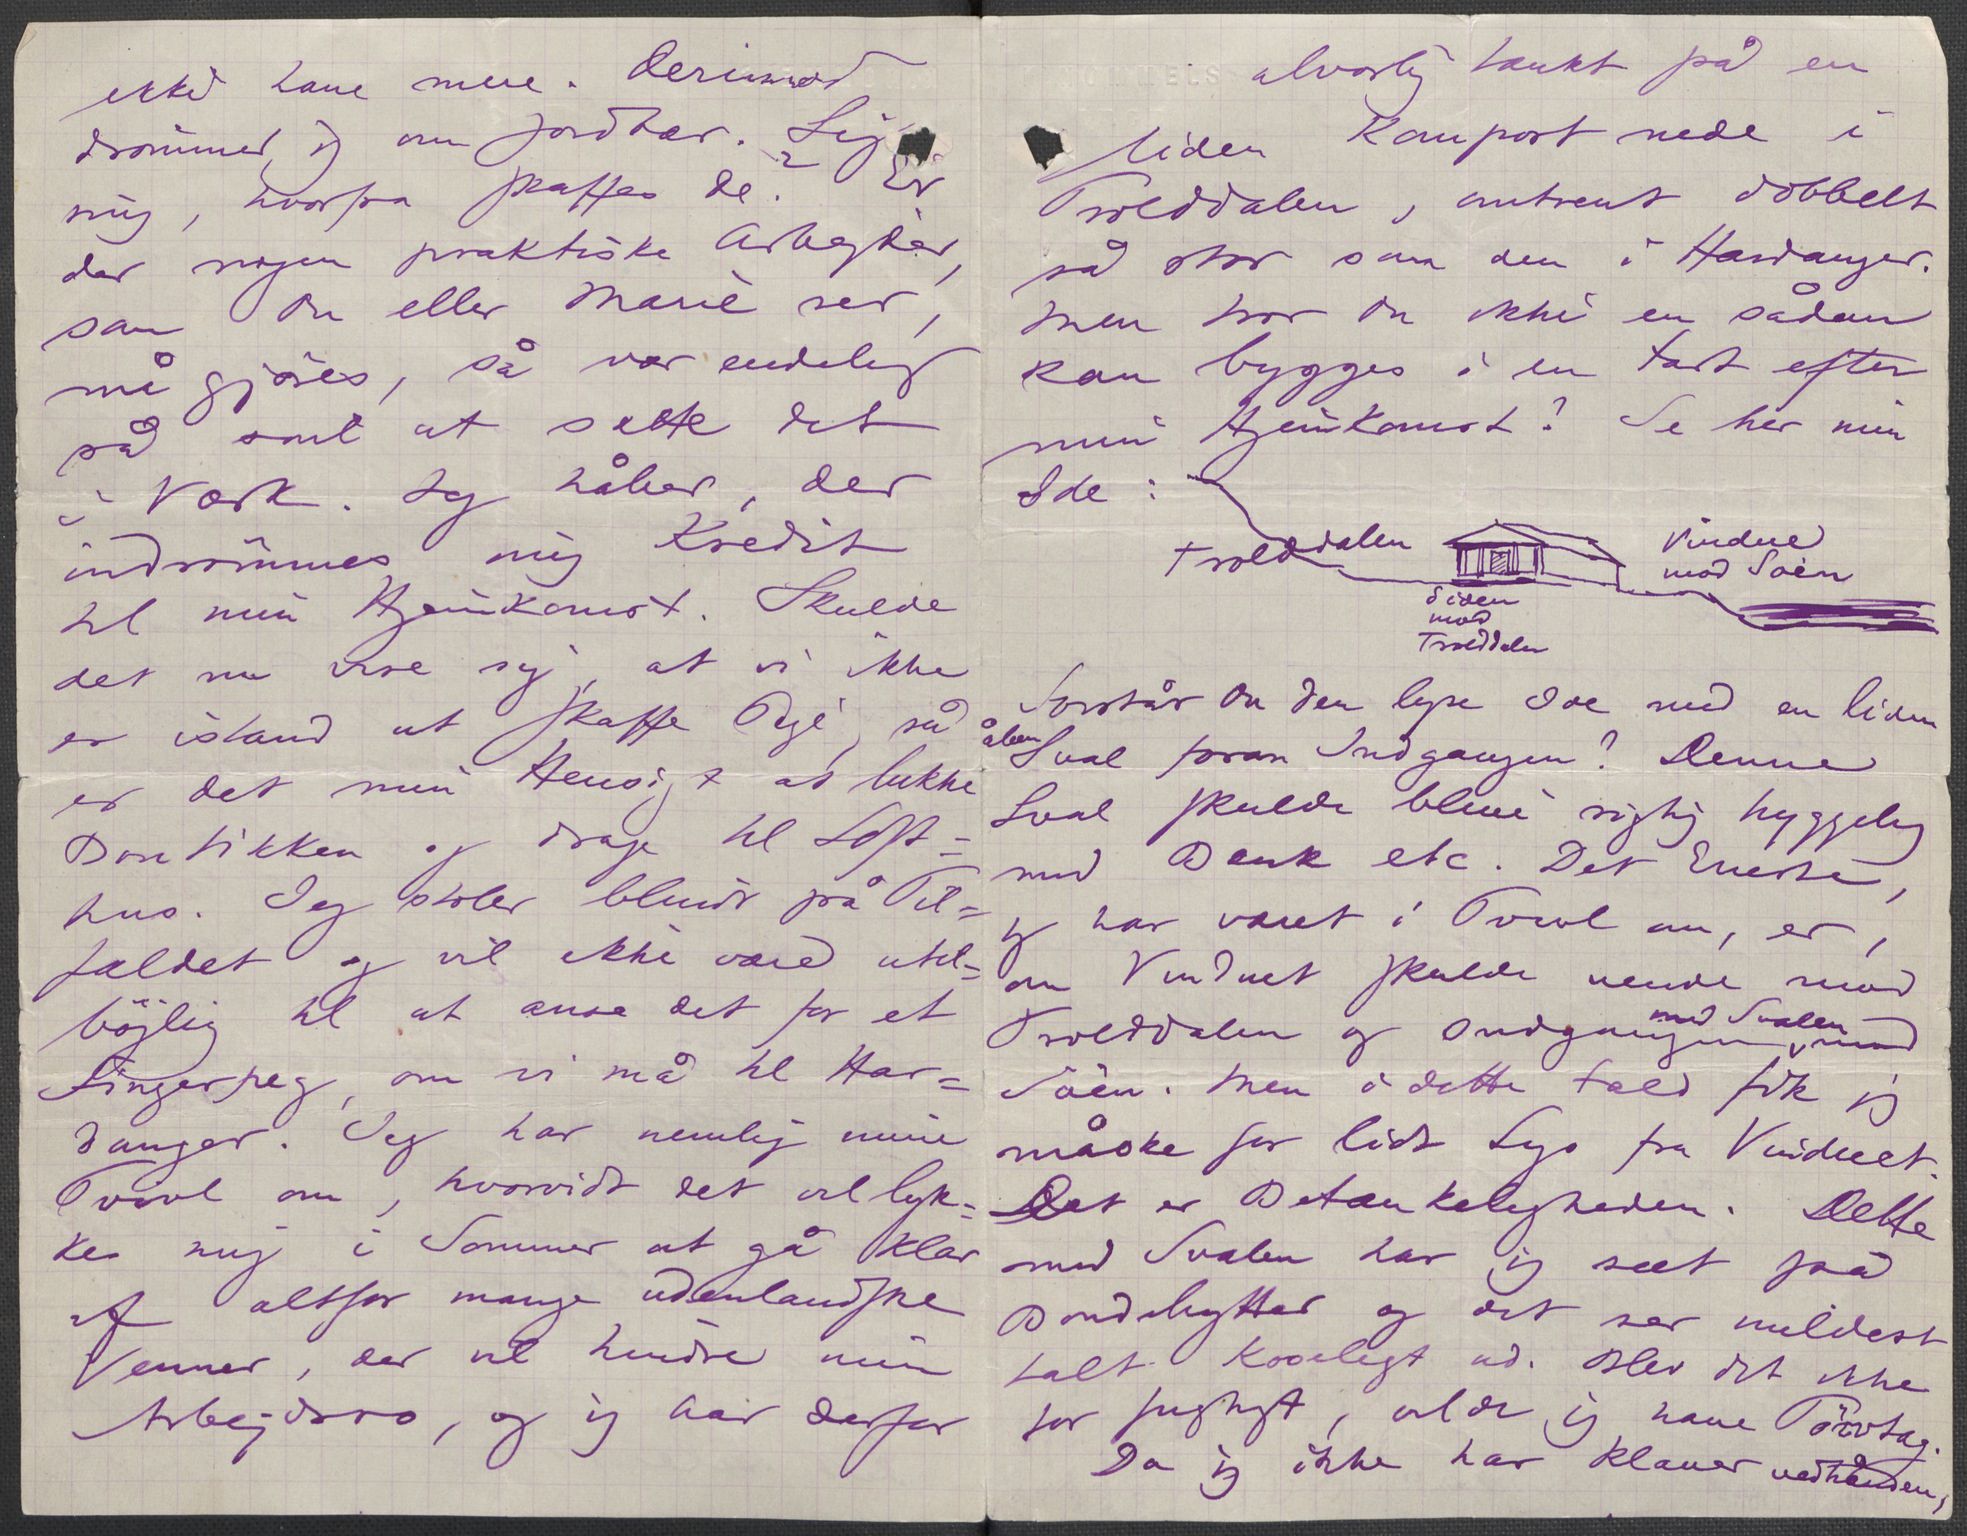 ikke have mere. Derimod
drömmer jeg om Jordbær. Sig
mig, hvorfra skaffes de? Er
der nogen praktiske Arbejder,
som Du eller Marie ser,
må gjöres, så vær endelig
så snil at sætte det
i Værk. Jeg håber, der
indrömmes mig Kredit
til min Hjemkomst. Skulde
det nu vise sig, at vi ikke
er istand at skaffe Pige, så
er det min Hensigt at lukke
Boutikken og drage til Loft=
hus. Jeg stoler blindt på Til=
fældet og vil ikke være util=
böjlig til at anse det for et
Fingerpeg, om vi må til Har=
danger. Jeg har nemlig mine
Tvivl om, hvorvidt det vil lyk=
kes mig i Sommer at gå klar
af altfor mange udenlandske
Venner, der vil hindre min
Arbejdsro, og jeg har derfor
alvorlig tænkt på en
liden Komport nede i
Trolddalen, omtrent dobbelt
så stor som den i Hardanger.
Men tror Du ikke en sådan
kan bygges i en Fart efter
min Hjemkomst? Se her min
Ide:
Trolddalen
Vindue
mod Söen
Siden
mod
Trolddalen
Forstår Du den lyse Ide med en liden
åben Sval foran Indgangen? Denne
Sval skulde blive rigtig hyggelig
med Benk etc. Det Eneste,
jeg har været i Tvivl om, er,
om Vinduet skulde vende mod
Trolddalen og Indgangen med Svalen mod
Söen. Men i dette Fald fik jeg
måske for lidt Lys fra Vinduet.
Det er Betænkeligheden. Dette
med Svalen har jeg seet på
Bondehytter og det ser mildest
talt koseligt ud. Blev det ikke
for fugtigt, vilde jeg have Törvtag.
Da jeg ikke har Klaver vedhånden,